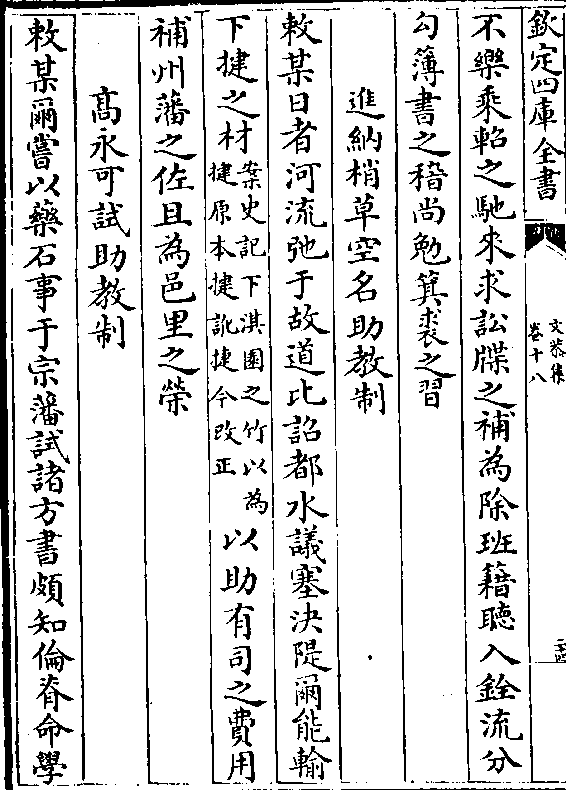 欽定四庫全書
文恭集
卷十八
不樂乘軺之馳來求訟牒之補為除班籍聽入銓流分
勾簿書之稽尚勉箕裘之習
進納梢草空名助教制
敕某日者河流弛于故道比詔都水議塞決隄爾能輸
下揵之材
案史記下淇園之竹以為
揵原本揵訛捷今改正
以助有司之費用
補州藩之佐且為邑里之榮
高永可試助教制
敕某爾嘗以藥石事于宗藩試諸方書頗知倫脊命學